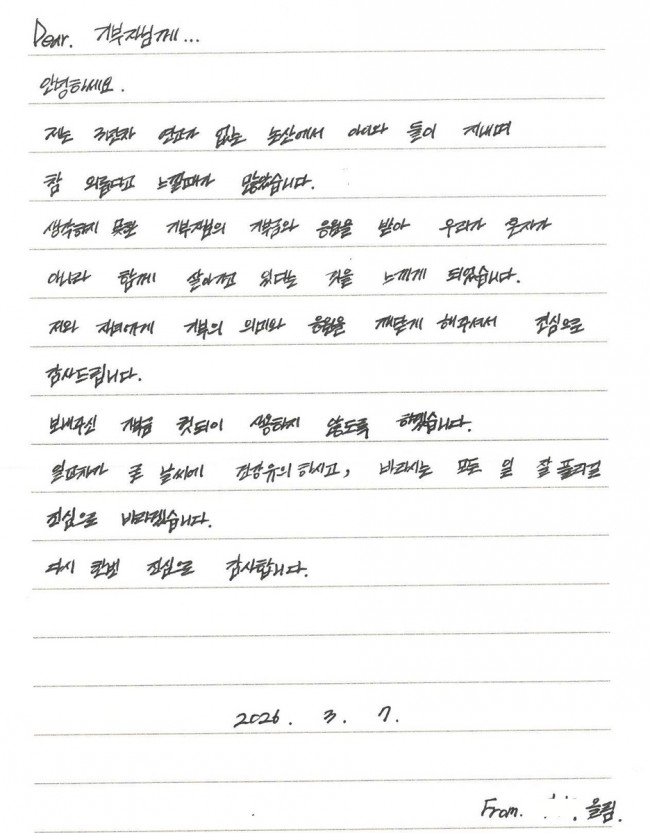 Dear. 기부자님께...
안녕하세요.
저는 연고가 없는 논산에서 아이와 둘이 지내며
참 외롭다고 느낄때가 많았습니다.
생각하지 못한 기부자님의 기부금와 응원을 받아 우리가 혼자가
아니라 함께 살아가고 있다는 것을 느끼게 되었습니다.
저와 자녀에게 기부의 의미와 응원을 깨닫게 해주셔서 진심으로
감사드립니다.
보내주신 기부금 헛되이 사용하지 않도록 하겠습니다.
일교차가 큰 날씨에 건강유의 하시고, 바라시는 모든 일 잘 풀리길
진심으로 바라겠습니다.
다시 한번 진심으로 감사합니다.
2026. 3. 7.
From. 올림.